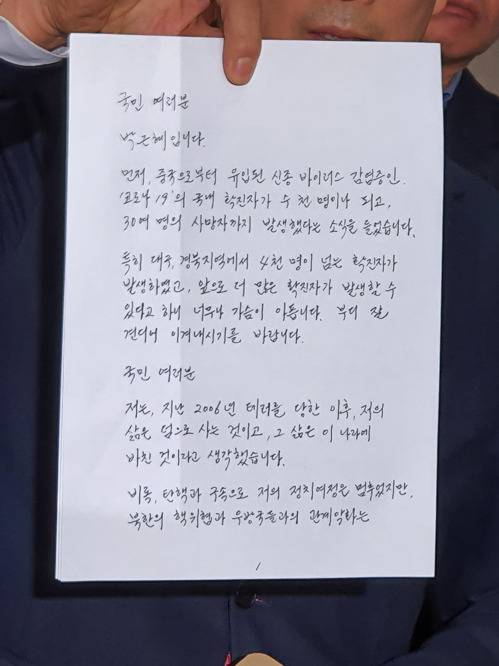 국민 여러분
박근혜입니다.
먼저, 중국으로부터 유입된 신종 바이러스 감염증인
'코로나 19'의 국내 확진자가 수 천 명이나 되고,
30여 명의 사망자까지 발생했다는 소식을 들었습니다.
특히 대구, 경북지역에서 4천 명이 넘는 확진자가
발생하였고, 앞으로 더 많은 확진자가 발생할 수
있다고 하니 너무나 가슴이 아픕니다. 부디 잘
견디어 이겨내시기를 바랍니다.
국민 여러분
저는, 지난 2006년 테러를 당한 이후, 저의
삶은 덤으로 사는 것이고, 그 삶은 이 나라에
바친 것이라고 생각했습니다.
비록, 탄핵과 구속으로 저의 정치여정은 멈추었지만,
북한의 핵위협과 우방국들과의 관계악화는
1